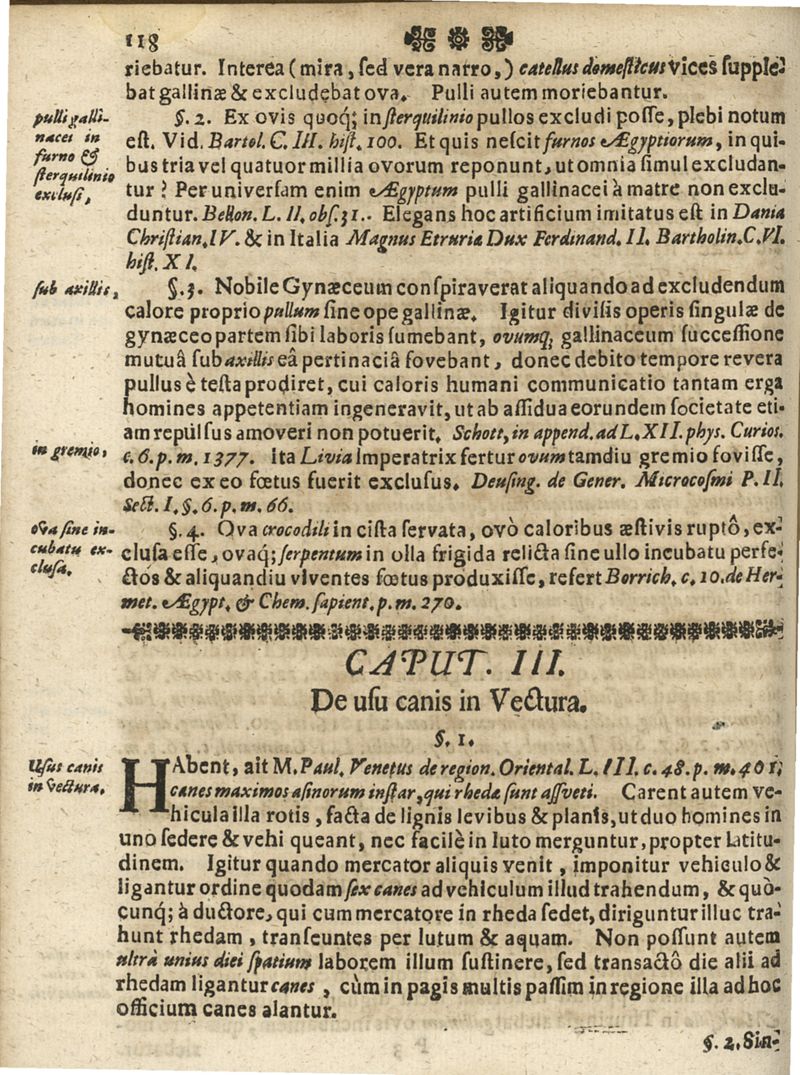 118
riebatur. Interea (mira, sed vera narro,) catellus domesticus vices supple-
bat gallinæ & excludebat ova. Pulli autem moriebantur.
pulli galli-
nacei in
furno &
sterquilinio
exclusi,
§. 2. Ex ovis quoq; in sterquilinio pullos excludi posse, plebi notum
est. Vid. Bartol. C. III. hist. 100. Et quis nescit furnos Ægyptiorum, in qui-
bus tria vel quatuor millia ovorum reponunt, ut omnia simul excludan-
tur? Per universam enim Ægyptum pulli gallinacei à matre non exclu-
duntur. Bellon. L. II. obs. 31.. Elegans hoc artificium imitatus est in Dania
Christian. IV. & in Italia Magnus Etruriæ Dux Ferdinand. II. Bartholin. C. VI.
hist. XI.
sub axillis,
§. 3. Nobile Gynæceum conspiraverat aliquando ad excludendum
calore proprio pullum sine ope gallinæ. Igitur divisis operis singulæ de
gynæceo partem sibi laboris sumebant, ovumq; gallinaceum successione
mutuâ sub axillis eâ pertinaciâ fovebant, donec debito tempore revera
pullus è testa prodiret, cui caloris humani communicatio tantam erga
homines appetentiam ingeneravit, ut ab assidua eorundem societate eti-
am repulsus amoveri non potuerit. Schott, in append. ad L. XII. phys. Curios.
in gremio,
c. 6. p. m. 1377. Ita Livia Imperatrix fertur ovum tamdiu gremio fovisse,
donec ex eo fœtus fuerit exclusus. Deusing. de Gener. Microcosmi P. II.
Sect. I. §. 6. p. m. 66.
ova sine in-
cubatu ex-
clusa.
§. 4. Ova crocodili in cista servata, ovô caloribus æstivis ruptô, ex-
clusa esse, ovaq; serpentum in olla frigida relicta sine ullo incubatu perfe-
ctos & aliquandiu viventes fœtus produxisse, refert Borrich. c. 10. de Her-
met. Ægypt. & Chem. sapient. p. m. 270.
CAPUT. III.
De usu canis in Vectura.
§. 1.
Usus canis
in vectura.
HAbent, ait M. Paul. Venetus de region. Oriental. L. III. c. 48. p. m. 401;
canes maximos asinorum instar, qui rhedæ sunt assveti. Carent autem ve-
hicula illa rotis, facta de lignis levibus & planis, ut duo homines in
uno sedere & vehi queant, nec facilè in luto merguntur, propter latitu-
dinem. Igitur quando mercator aliquis venit, imponitur vehiculo &
ligantur ordine quodam sex canes ad vehiculum illud trahendum, & quò-
cunq; à ductore, qui cum mercatore in rheda sedet, diriguntur illuc tra-
hunt rhedam, transeuntes per lutum & aquam. Non possunt autem
ultra unius diei spatium laborem illum sustinere, sed transactô die alii ad
rhedam ligantur canes, cùm in pagis multis passim in regione illa ad hoc
officium canes alantur.
§. 2. Sin-